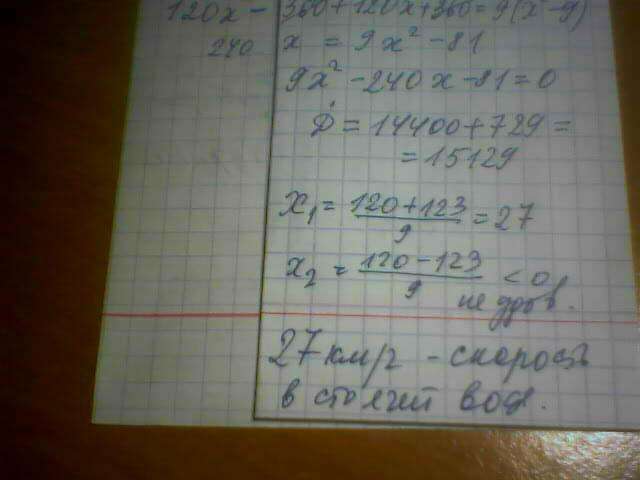 120x - 360 + 120x + 360 = 9(x² - 9)
240 x = 9x² - 81
9x² - 240x - 81 = 0
D' = 14400 + 729 =
= 15129
x₁ = (120 + 123)/9 = 27
x₂ = (120 - 123)/9 < 0
не удов.
27 км/г - скорость
в стоячей воде.